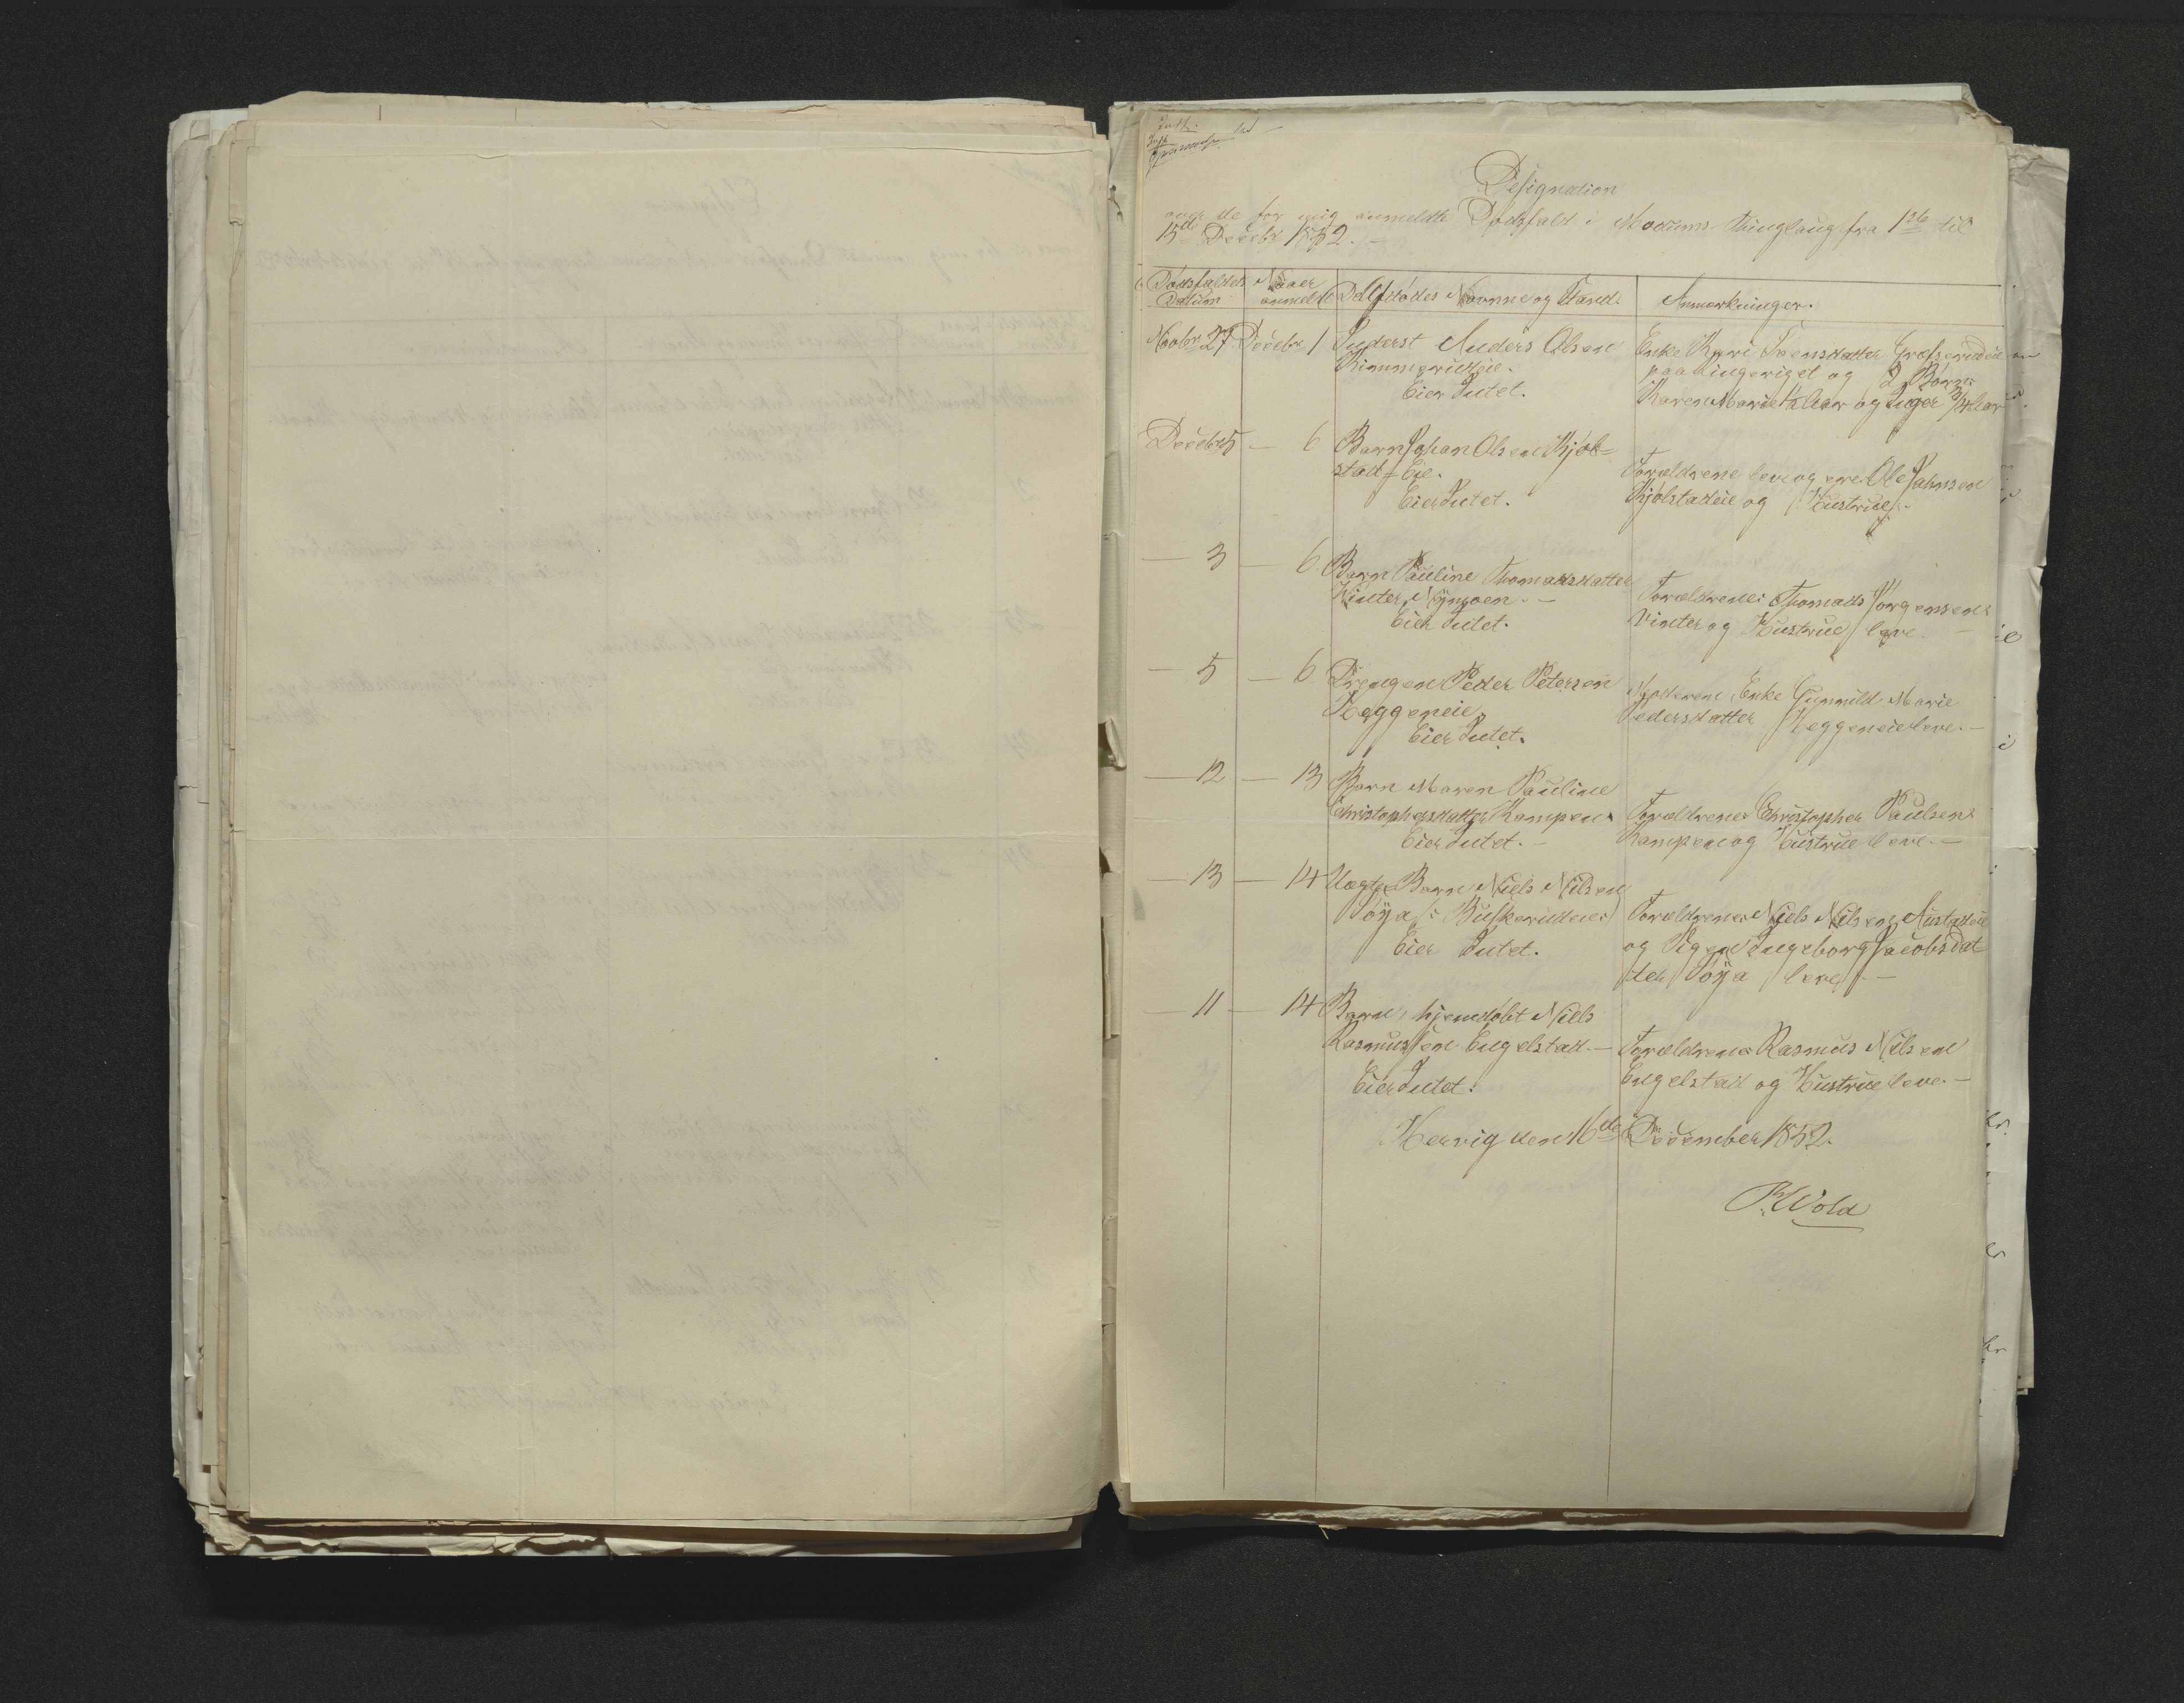 Designation
over de for mig anmeldte Dødsfald i Modums Thinglaug fra 1ste til
15d Decebr 1852. –
Dødsfaldets Datum
Naaer anmeldt
De Afdødes Navnne og Stand.
Anmærkninger.
Novbr 27 Decebr 1 Inderst Anders Olsen
Kimmerudeie.
Eier Intet.
Enke Kari Svensdatter
paa Ringeriget og 2 Børn
Karen Marie
Decebr 5 – 6 Barn Johan Olsen Kjøl-
stad-Eie.
Eier Intet.
Forældrene leve og ere Ole Johnsen
Kjølstadeie og Hustrue.
– 3 – 6 Barn Pauline Thomasdatter
Vinter, Nymoen. –
Eier Intet.
Forældrene: Thomas Jørgensen
Vinter og Hustrue leve –
– 5 – 6 Drengen Peder Petersen
Heggeneie.
Eier Intet.
Moderen Enke Gunnild Marie
Pedersdatter Heggeneie leve. –
– 12 – 13 Barn Maren Pauline
Christophersdatter Kampen.
Eier Intet. –
Forældrene Christopher Paulsen
Kampen og Hustrue leve. –
– 13 – 14 Uægte Barn Niels Nilsen
Søya /: Buskerudeie:/
Eier Intet.
Forældrene Niels Nilsen
og Pigen Ingeborg Jacobsdat-
ter Søya leve. –
– 11 – 14 Barn, hjemdøbt Niels
Rasmussen Engelstad. –
Eier Intet.
Forældrene Rasmus Nilsen
Engelstad og Hustrue leve. –
Hervig den 16de December 1852.
P. Wold